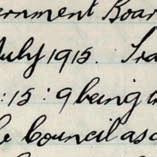 ernment Boar
July 1915. Tra
:15:9 being a
e Council as a